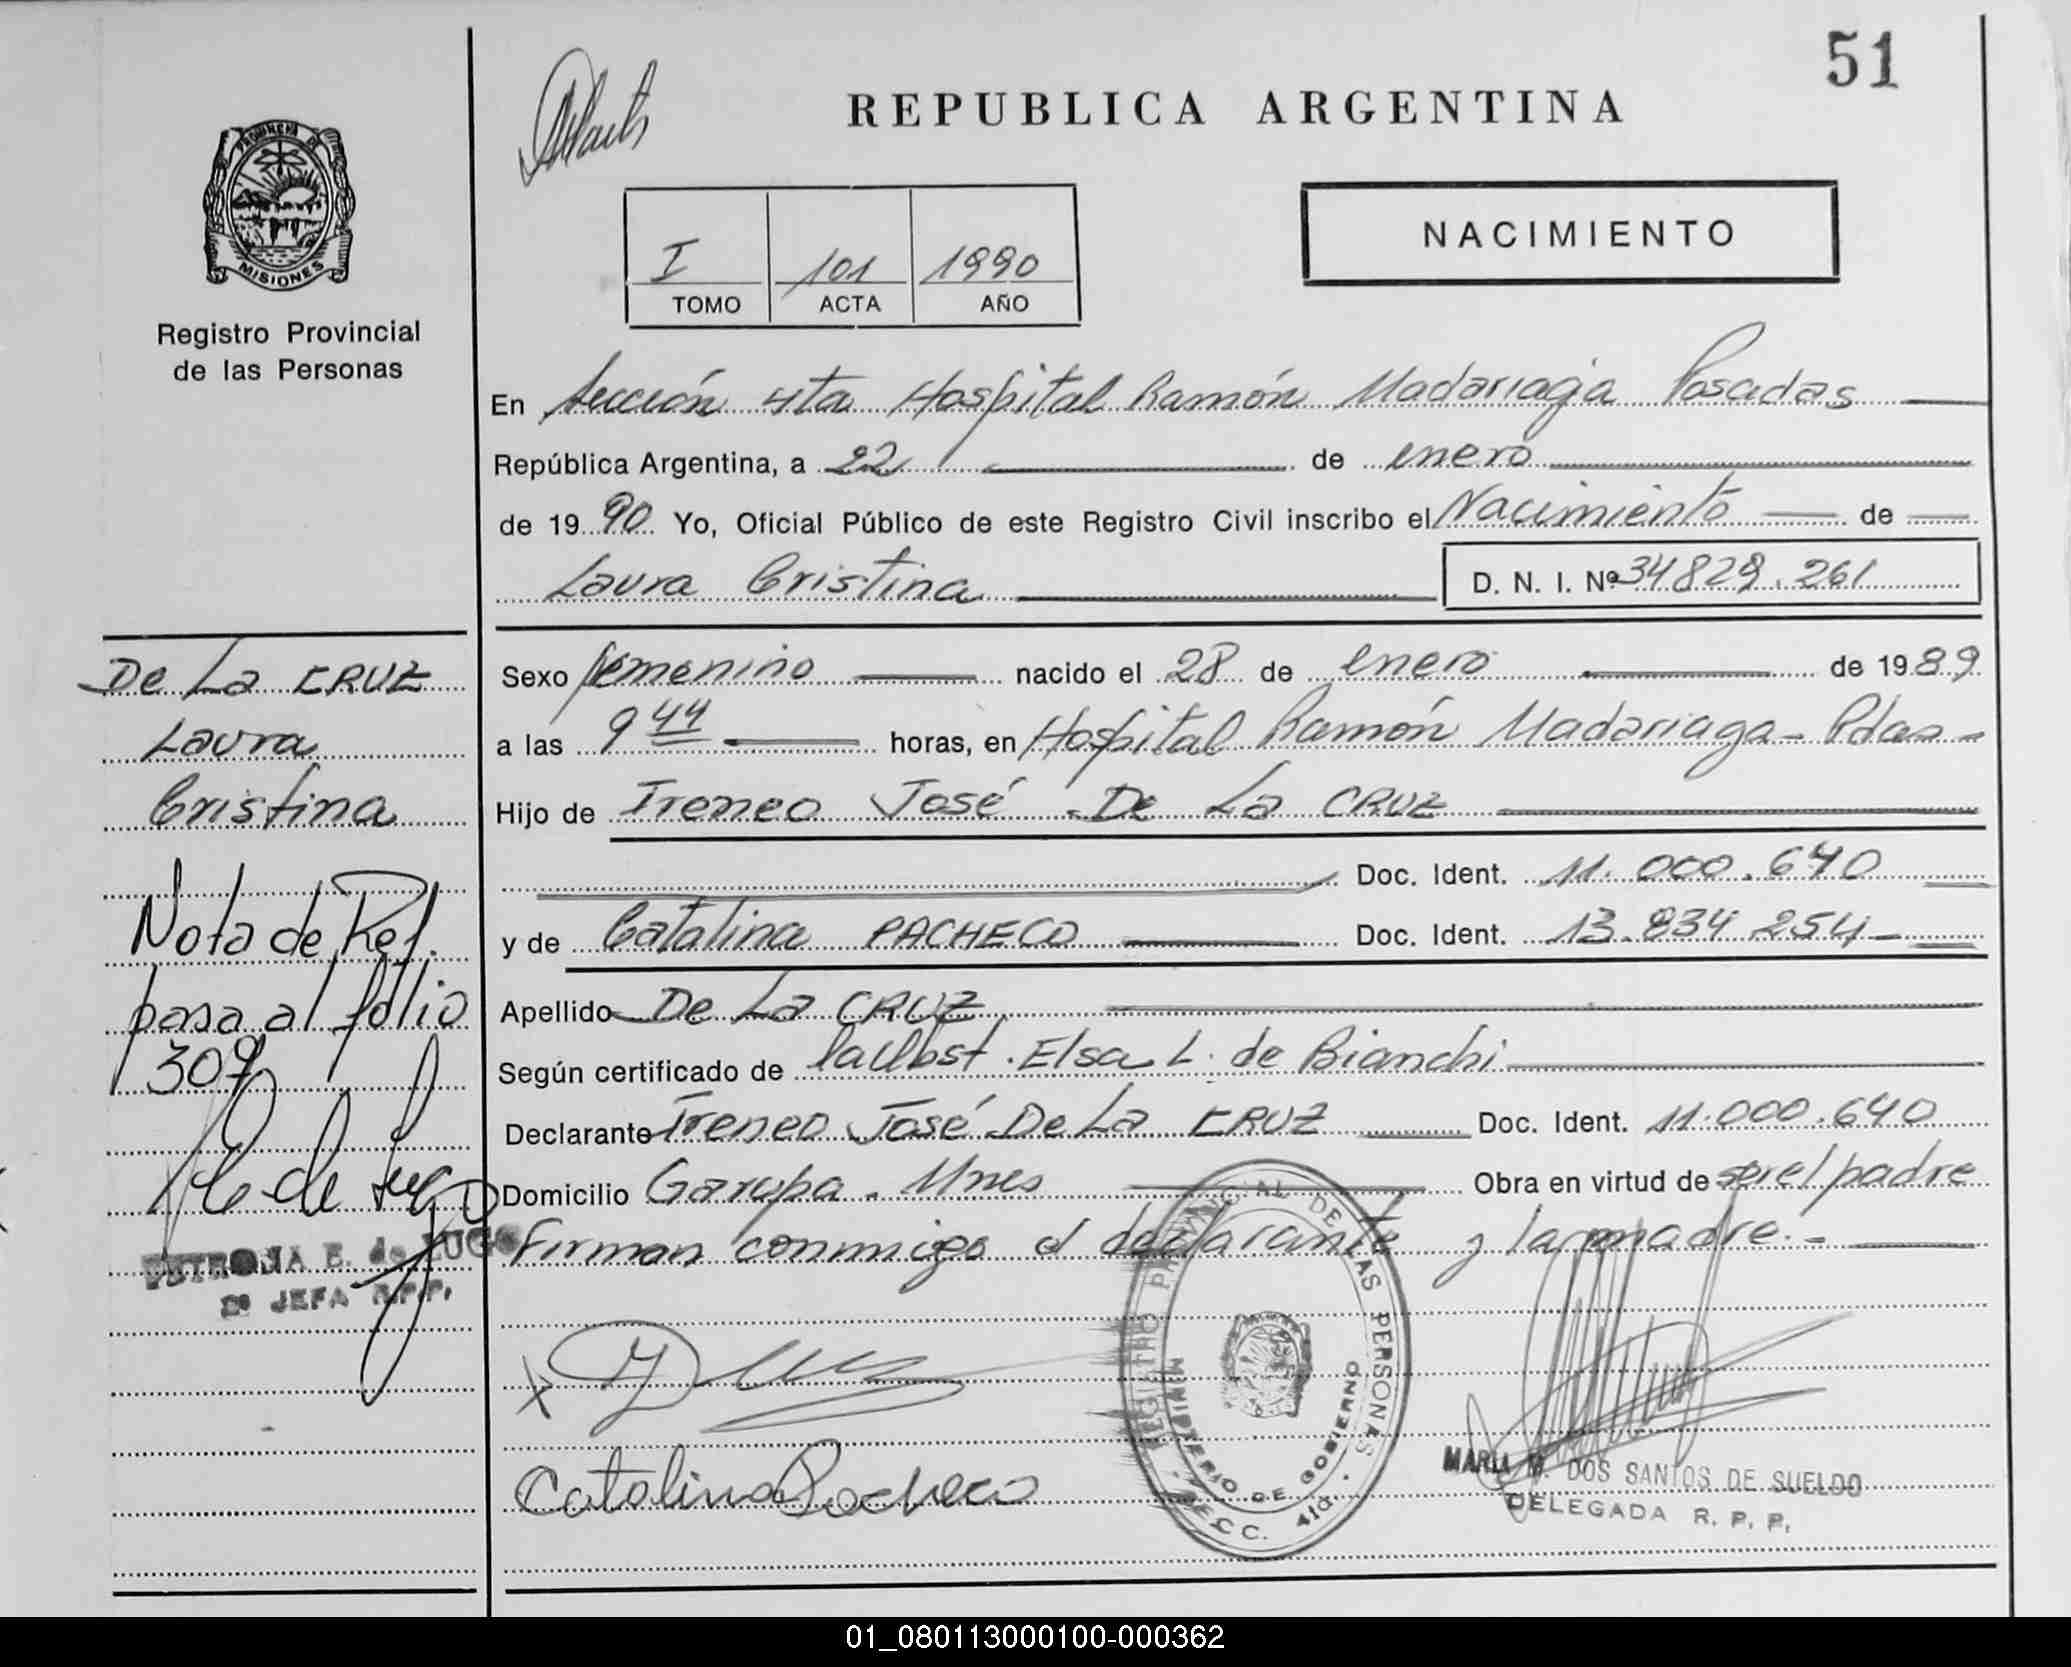 51
REPUBLICA ARGENTINA
PROVINCIA DE
MISIONES
Registro Provincial
de las Personas
NACIMIENTO
I 101 1990
TOMO ACTA AÑO
En Sección 4ta Hospital Ramón Madariaga Posadas
República Argentina, a 22 de enero
de 1990 Yo, Oficial Público de este Registro Civil inscribo el Nacimiento de
Laura Cristina D. N. I. Nº 34.829.261
De La CRUZ
Laura
Cristina
Nota de Ref.
pasa al folio
309
PETRONA E. de LUGO
2º JEFA R.P.P.
Sexo femenino nacido el 28 de enero de 1989
a las 9 44 horas, en Hospital Ramón Madariaga - Pdas -
Hijo de Ireneo José De La CRUZ
Doc. Ident. 11.000.640
y de Catalina PACHECO Doc. Ident. 13.834 254
Apellido De La CRUZ
Según certificado de la Obst. Elsa L. de Bianchi
Declarante Ireneo José De La CRUZ Doc. Ident. 11.000.640
Domicilio Garupa - Mnes Obra en virtud de ser el padre
Firman conmigo el declarante y la madre.-
Catalina Pacheco
REGISTRO PROVINCIAL DE LAS PERSONAS
MINISTERIO DE GOBIERNO
SECC. 4ta.
MARIA M. DOS SANTOS DE SUELDO
DELEGADA R. P. P.
01_080113000100-000362